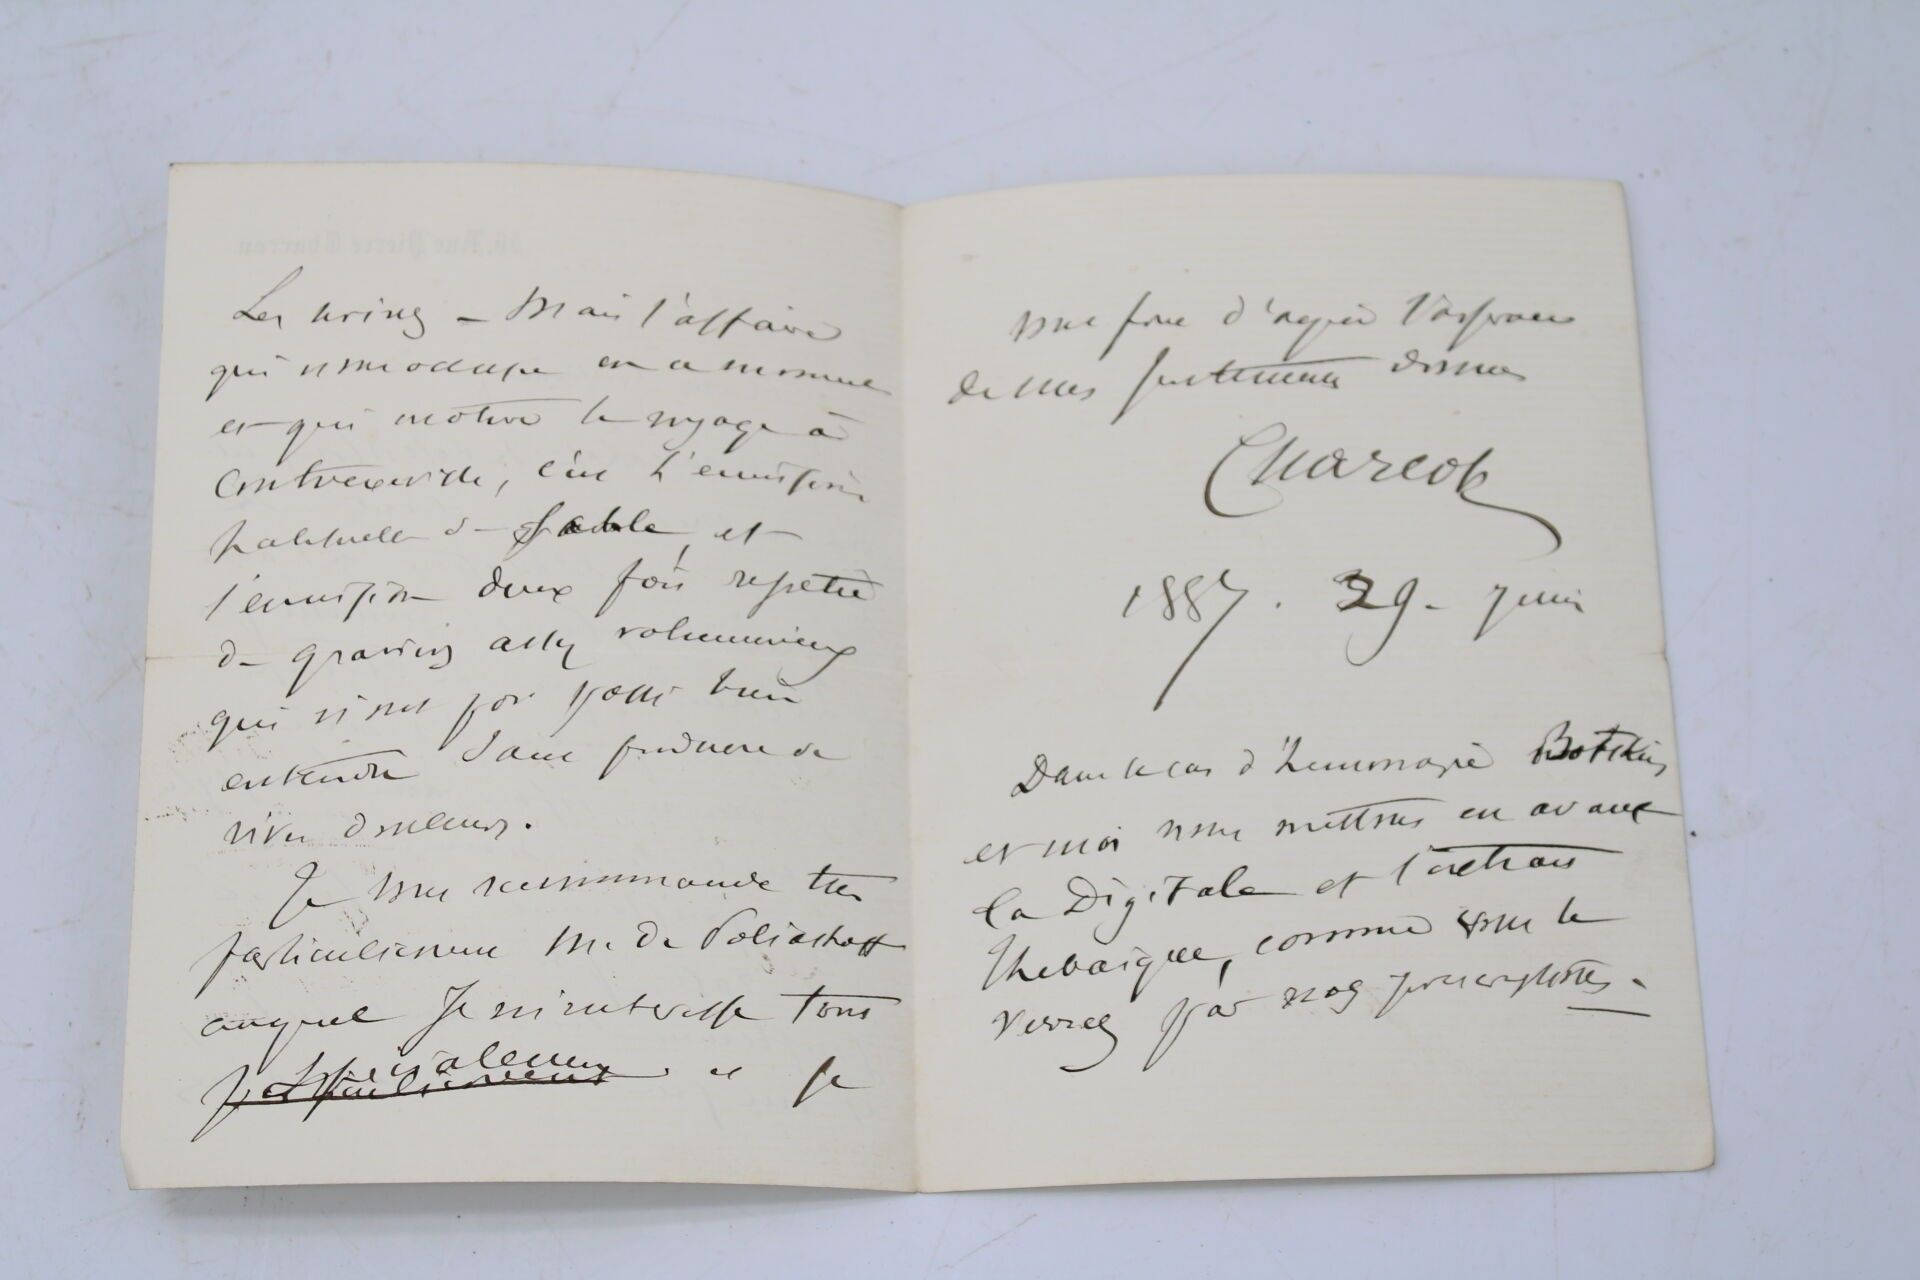 Les urines – Mais l'affaire
qui nous occupe en ce moment
et qui motive le voyage à
Contrexeville, c'est l'emission
habituelle de sable et
l'emission deux fois repetée
de graviers assez volumineux
qui n'ont pas passé bien
entendu sans produire de
vives douleurs.
Je vous recommande tres
particulierement Mr de Poliakoff
auquel Je m'interesse tout
specialement et je
vous prie d'agréer l'assurance
de mes sentiments devoués
Charcot
1887. 29 - juin
Dans le cas d'hemorragie Botkin
et moi nous mettons en avant
la Digitale et l'extrait
thebaique, comme vous le
verrez par nos prescriptions.